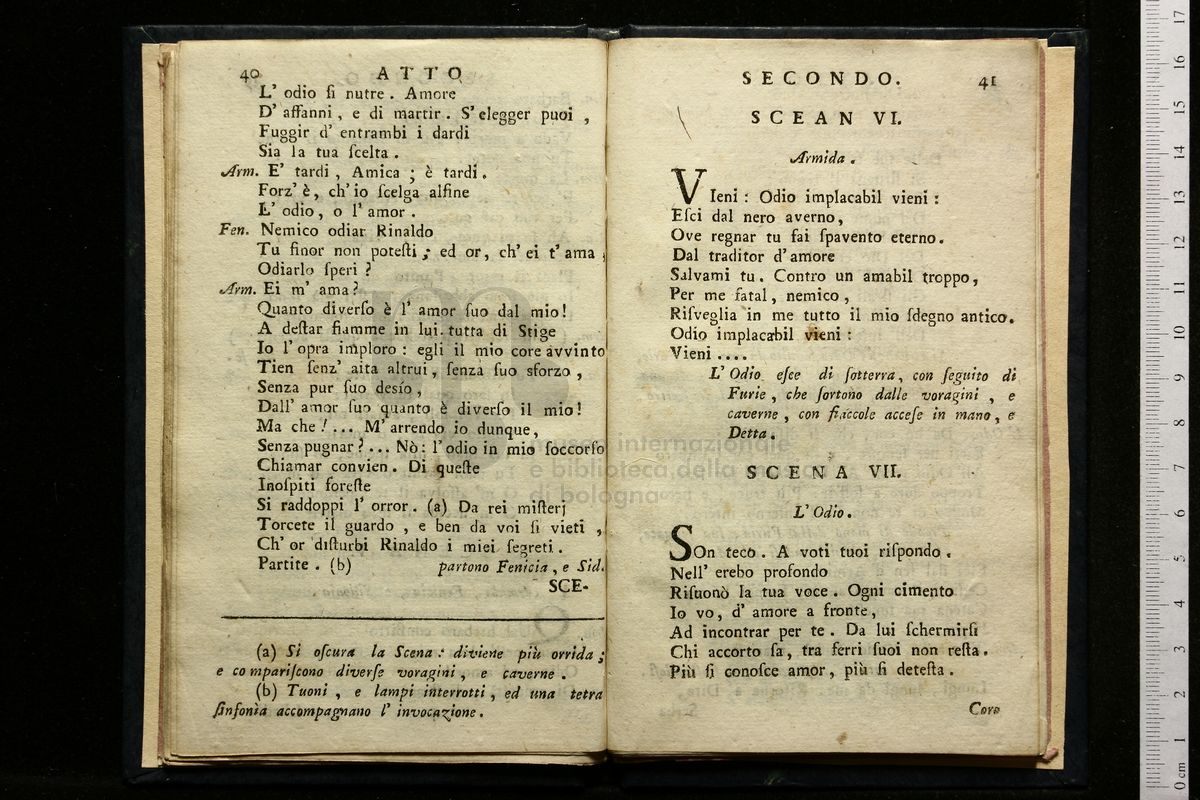 40 ATTO
L' odio ſi nutre. Amore
D' affanni, e di martir. S'elegger puoi,
Fuggir d' entrambi i dardi
Sia la tua ſcelta.
Arm. E' tardi, Amica; è tardi.
Forz' è, ch'io ſcelga alfine
E' odio, o l'amor.
Fen. Nemico odiar Rinaldo
Tu finor non poteſti; ed or, ch' ei t' ama;
Odiarlo ſperi?
Arm. Ei m' ama?
Quanto diverſo è l' amor ſuo dal mio!
A deſtar fiamme in lui tutta di Stige
Io l'opra imploro: egli il mio core avvinto
Tien ſenz' aita altrui, ſenza ſuo sforzo,
Senza pur ſuo desío,
Dall' amor ſuo quanto è diverſo il mio!
Ma che!... M' arrendo io dunque,
Senza pugnar?... Nò: l'odio in mio ſoccorſo
Chiamar convien. Di queſte
Inoſpiti foreſte
Si raddoppi l' orror. (a) Da rei miſterj
Torcete il guardo, e ben da voi ſi vieti,
Ch' or diſturbi Rinaldo i miei ſegreti.
Partite. (b) partono Fenicia, e Sid.
SCE-
(a) Si oſcura la Scena: diviene più orrida;
e compariſcono diverſe voragini, e caverne.
(b) Tuoni, e lampi interrotti, ed una tetra
ſinfonìa accompagnano l' invocazione.
SECONDO. 41
SCEAN VI.
Armida.
VIeni: Odio implacabil vieni:
Eſci dal nero averno,
Ove regnar tu fai ſpavento eterno.
Dal traditor d'amore
Salvami tu. Contro un amabil troppo,
Per me fatal, nemico,
Riſveglia in me tutto il mio ſdegno antico.
Odio implacabil vieni:
Vieni....
L' Odio eſce di ſotterra, con ſeguito di
Furie, che ſortono dalle voragini, e
caverne, con fiaccole acceſe in mano, e
Detta.
SCENA VII.
L' Odio.
SOn teco. A voti tuoi riſpondo.
Nell' erebo profondo
Riſuonò la tua voce. Ogni cimento
Io vo, d' amore a fronte,
Ad incontrar per te. Da lui ſchermirſi
Chi accorto ſa, tra ferri ſuoi non reſta.
Più ſi conoſce amor, più ſi deteſta.
Coro
museo internazionale
e biblioteca della musica
di bologna
0 cm 1 2 3 4 5 6 7 8 9 10 11 12 13 14 15 16 17